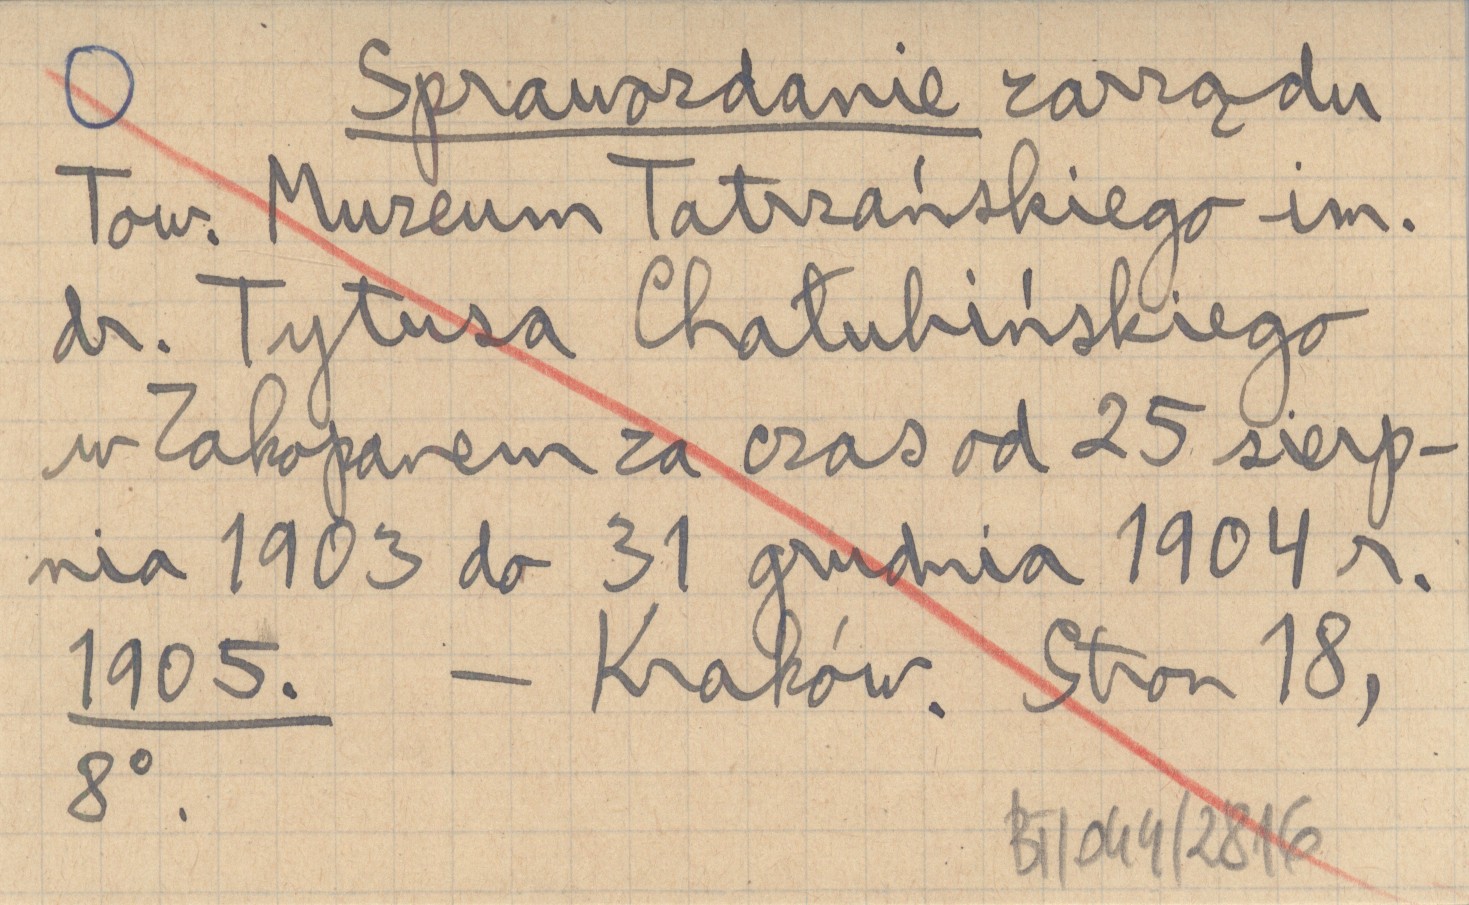 Sprawozdanie zarządu
Tow. Muzeum Tatrzańskiego im.
dr. Tytusa Chałubińskiego
w Zakopanem za czas od 25 sierp-
nia 1903 do 31 grudnia 1904 r.
1905. — Kraków. Stron 18,
8°.
BT/044/2816